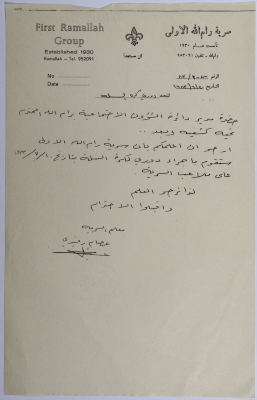 First Ramallah
Group
Established 1930
Ramallah - Tel. 952091
No
Date
سرية رام الله الاولى
تأسست عام ١٩٣٠
رام الله - تلفون ٩٥٢٠٩١
كن مستعدا
الرقم
التاريخ
حضرة مدير دائرة الشؤون الاجتماعية رام الله المحترم
تحية كشفية وبعد ..
ارجو ان اعلمكم بان سرية رام الله الاولى
ستقوم باجراء دوري كرة السلة بتاريخ
على ملاعب السرية .
لذا نرجو العلم
واقبلوا الاحترام
عصام